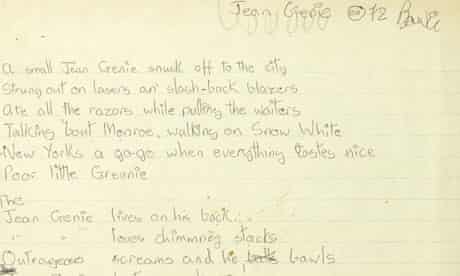 Jean Genie © 72 Bowie
A small Jean Genie snuck off to the city
Strung out on lasers an' slash-back blazers
Ate all the razors while pulling the waiters
Talking 'bout Monroe, walking on Snow White
New Yorks a go-go when everything tastes nice
Poor little Greenie
The
Jean Genie lives on his back..
" " loves chimney stacks
Outrageous screams and he bawls